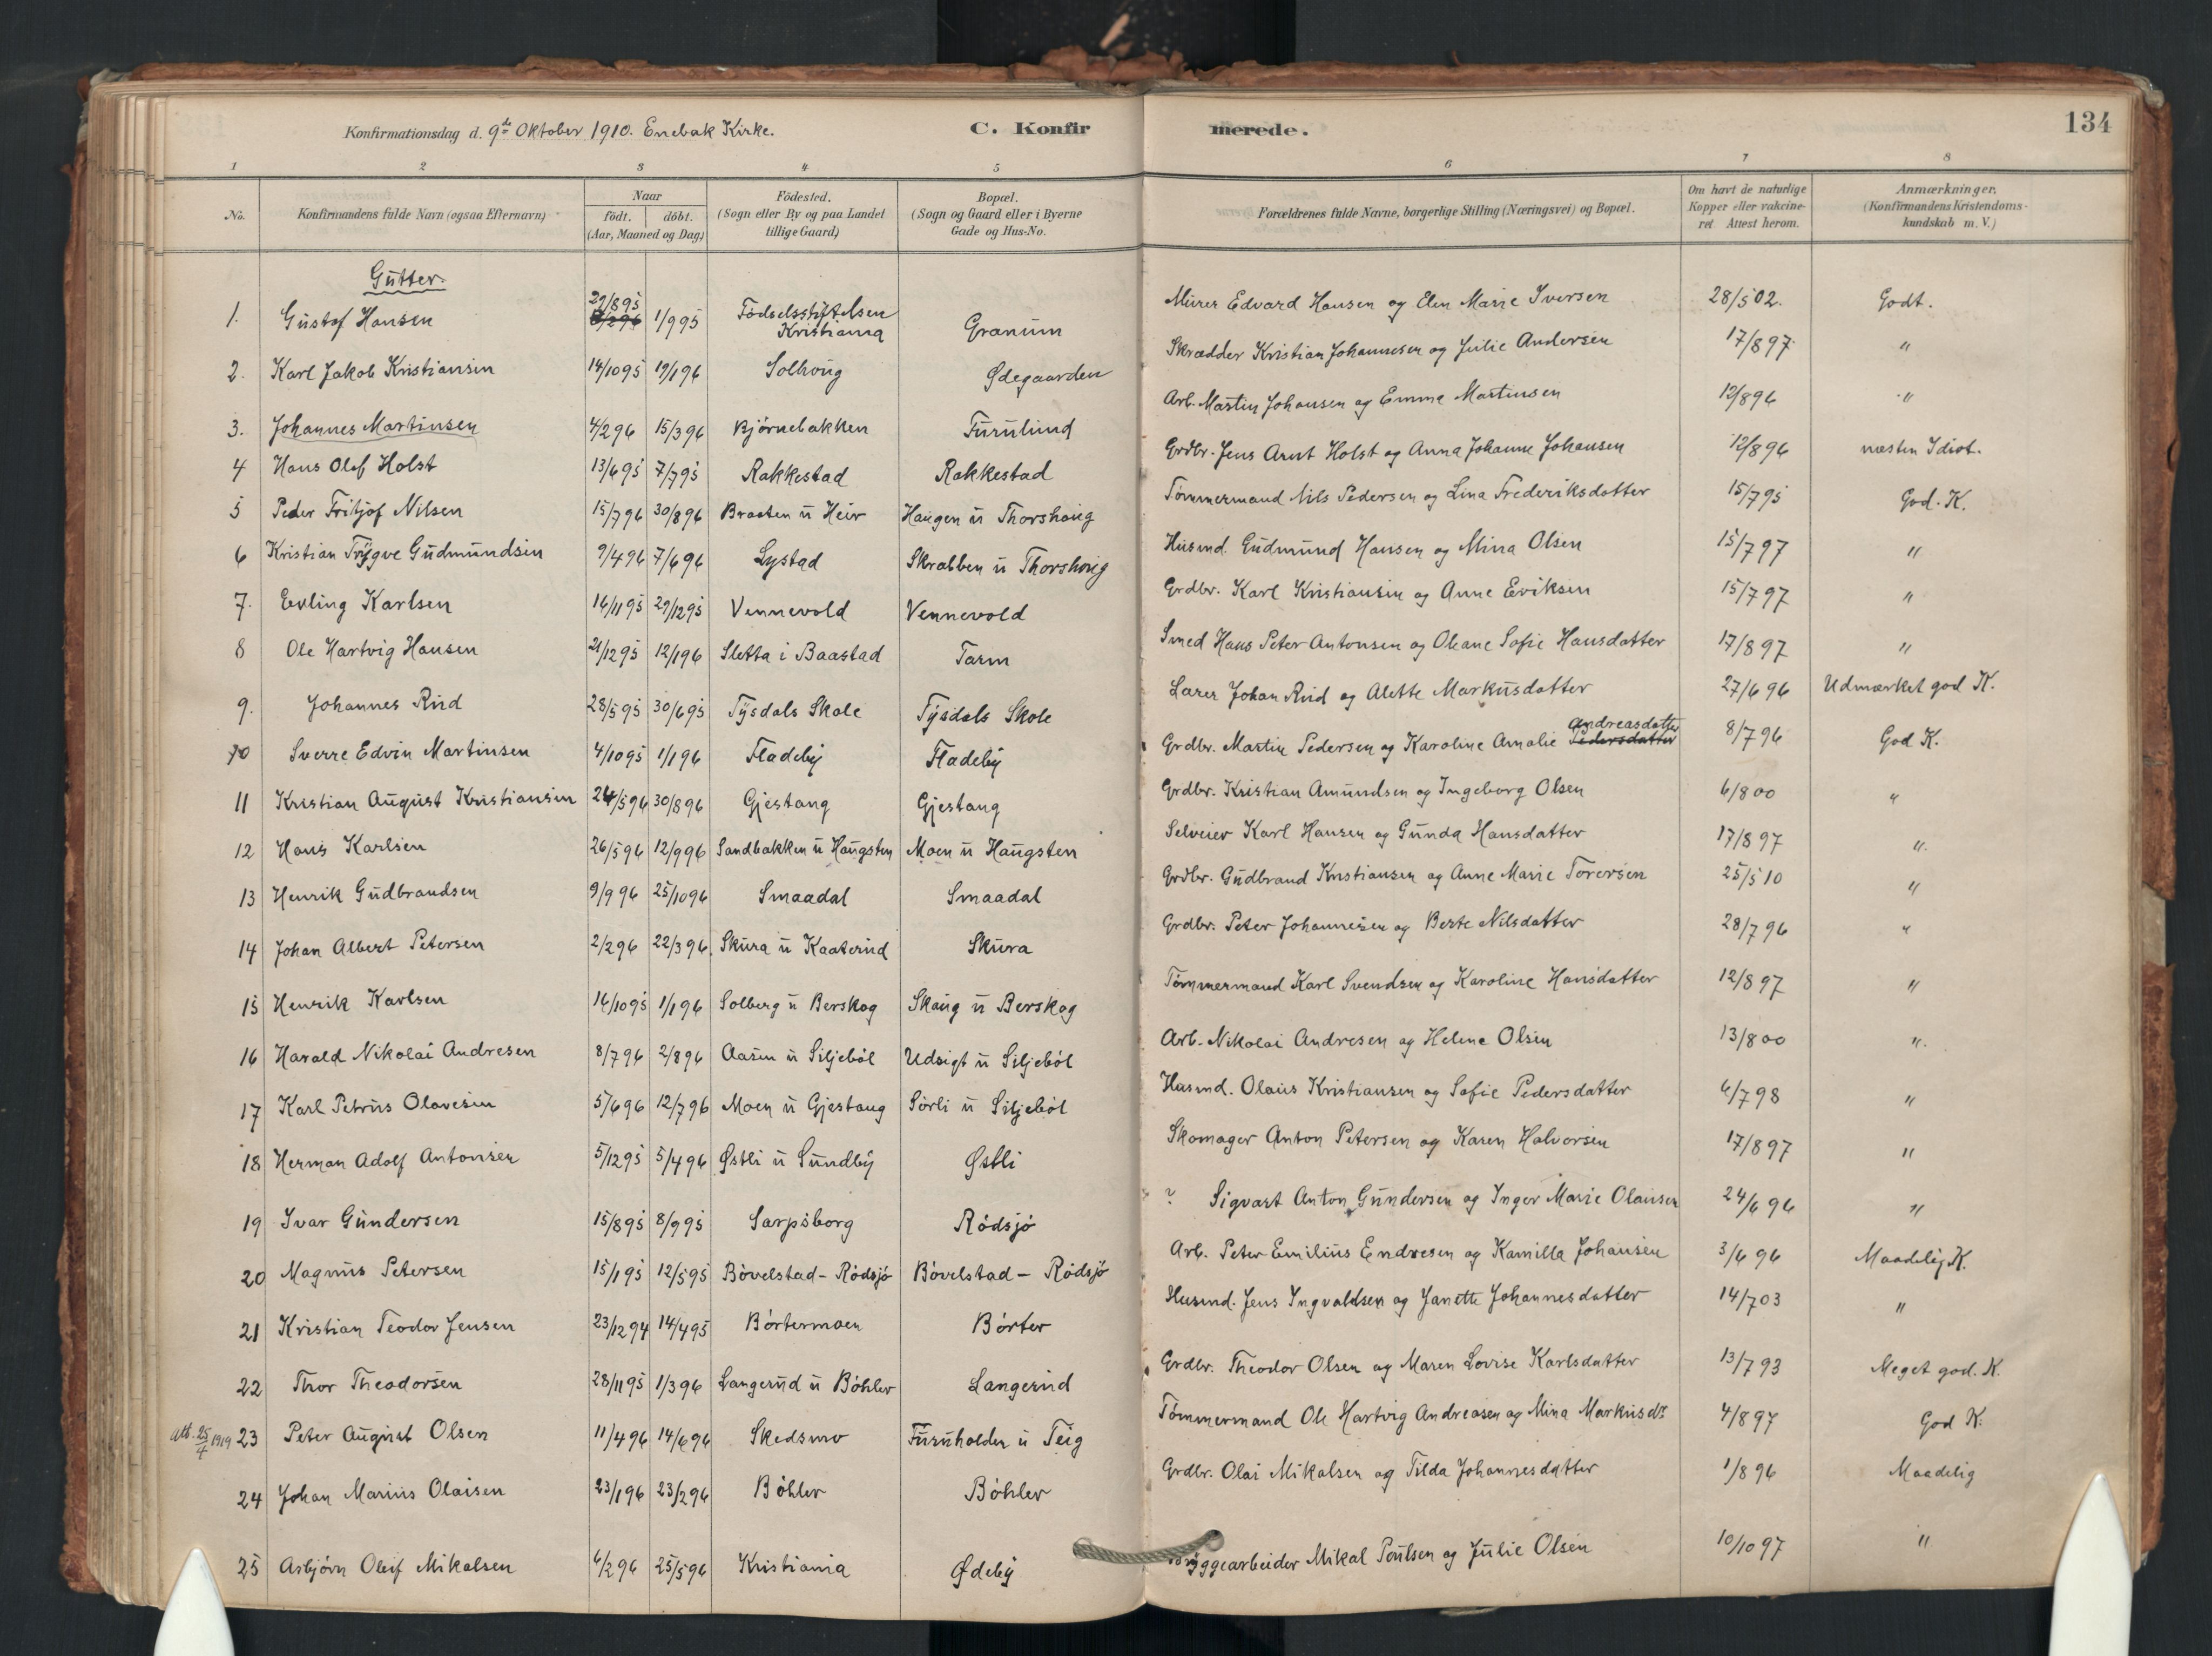 Konfirmationsdag d. 9de Oktober 1910. Enebak Kirke. C. Konfirmerede. 134
1 2 3 4 5 6 7 8
No. Konfirmandens fulde Navn (ogsaa Efternavn) Naar födt. döbt. (Aar, Maaned og Dag) Födested. (Sogn eller By og paa Landet tillige Gaard) Bopæl. (Sogn og Gaard eller i Byerne Gade og Hus-No. Forældrenes fulde Navne, borgerlige Stilling (Næringsvei) og Bopæl. Om havt de naturlige Kopper eller vakcineret Attest herom. Anmærkninger. (Konfirmandens Kristendomskundskab m. V.)
Gutter.
1. Gustaf Hansen 29/895 1/995 Födselsstiftelsen Kristiania Granum Murer Edvard Hansen og Elen Marie Iversen 28/502. Godt.
2. Karl Jakob Kristiansen 14/1095 19/196 Solhoug Ødegaarden Skrædder Kristian Johannesen og Julie Andersen 17/897. "
3. Johannes Martinsen 4/296 15/396 Bjørnebakken Furulund Arb. Martin Johansen og Emma Martinsen 12/896 "
4 Hans Olaf Holst 13/695 7/795 Rakkestad Rakkestad Grdbr. Jens Arnt Holst og Anna Johanne Johansen 12/896 næsten Idiot.
5 Peder Fritjof Nilsen 15/796 30/896 Braaten u Heir Haugen u Thorshoug Tömmermand Nils Pedersen og Lina Frederiksdatter 15/795 God. K.
6 Kristian Trygve Gudmundsen 9/496 7/696 Lystad Skrabben u Thorshoug Husmd. Gudmund Hansen og Mina Olsen 15/797 "
7. Erling Karlsen 16/1195 29/1295 Vennevold Vennevold Grdbr. Karl Kristiansen og Anne Eriksen 15/797 "
8 Ole Hartvig Hansen 21/1295 12/196 Sletta i Baastad Tarm Smed Hans Peter Antonsen og Oleane Sofie Hansdatter 17/897 "
9. Johannes Rud 28/595 30/695 Tysdals Skole Tysdals Skole Lærer Johan Rud og Alette Markusdatter 27/696 Udmærket god K.
10 Sverre Edvin Martinsen 4/1095 1/196 Fladeby Fladeby Grdbr. Martin Pedersen og Karoline Amalie Pedersdatter Andreasdatter 8/796 God K.
11 Kristian August Kristiansen 24/596 30/896 Gjestang Gjestang Grdbr. Kristian Amundsen og Ingeborg Olsen 6/800 "
12 Hans Karlsen 26/596 12/996 Sandbakken u Haugsten Moen u Haugsten Selveier Karl Hansen og Gunda Hansdatter 17/897 "
13 Henrik Gudbrandsen 9/996 25/1096 Smaadal Smaadal Grdbr. Gudbrand Kristiansen og Anne Marie Torersen 25/510 "
14 Johan Albert Petersen 2/296 22/396. Skura u Kaaterud Skura Grdbr. Peter Johannesen og Berte Nilsdatter 28/796 "
15 Henrik Karlsen 16/1095 1/196 Solberg u Berskog Skaug u Berskog Tömmermand Karl Svendsen og Karoline Hansdatter 12/897 "
16 Harald Nikolai Andresen 8/796 2/896 Aasen u Siljeböl Udsigt u Siljeböl Arb. Nikolai Andresen og Helene Olsen 13/800 "
17 Karl Petrus Olavesen 5/696 12/796 Moen u Gjestaug Sörli u Siljeböl Husmd. Olaus Kristiansen og Sofie Pedersdatter 6/798 "
18 Herman Adolf Antonsen 5/1295 5/496 Østli u Sundby Østli Skomager Anton Petersen og Karen Halvorsen 17/897 "
19 Ivar Gundersen 15/895 8/995 Sarpsborg Rödsjö ? Sigvart Anton Gundersen og Inger Marie Olausen 24/696 "
20 Magnus Petersen 15/195 12/595 Bövelstad - Rödsjö Bövelstad - Rödsjö Arb. Peter Emilius Endresen og Kamilla Johansen 3/696 Maadelig K.
21 Kristian Teodor Jensen 23/1294 14/495 Börtermoen Börter Husmd. Jens Ingvaldsen og Janette Johannesdatter 14/703 "
22 Thor Theodorsen 28/1195 1/396 Langerud u Böhler Langerud Grdbr. Theodor Olsen og Maren Lovise Karlsdatter 13/793 Meget god. K.
att. 25/4 1919 23 Peter August Olsen 11/496 14/696 Skedsmo Furuholder u Teig Tömmermand Ole Hartvig Andreasen og Mina Markusdr 4/897 God K.
24 Johan Marius Olaisen 23/196 23/296 Böhler Böhler Grdbr. Olai Mikalsen og Tilda Johannesdatter 1/896 Maadelig
25 Asbjörn Oleif Mikalsen 6/296 25/596 Kristiania Ødeby Bryggearbeider Mikal Poulsen og Julie Olsen 10/1097 "